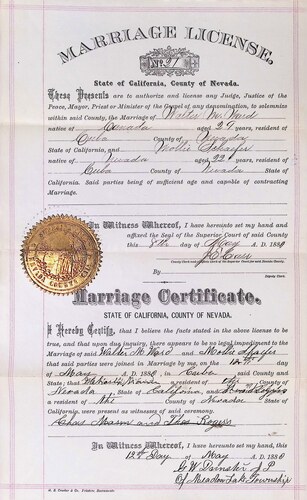 MARRIAGE LICENSE,
No 21
State of California, County of Nevada.
These Presents are to authorize and license any Judge, Justice of the
Peace, Mayor, Priest or Minister of the Gospel of any denomination, to solemnize
within said County, the Marriage of Walter M. Ward
native of Canada aged 29 years, resident of
Cuba County of Nevada
State of California, and Mollie Schaefer
native of Nevada aged 22 years, resident of
Cuba County of Nevada State of
California. Said parties being of sufficient age and capable of contracting
Marriage.
In Witness Whereof, I have hereunto set my hand and
affixed the Seal of the Superior Court of said County
this 8th day of May A.D. 188
By
Deputy Clerk.
Marriage Certificate.
STATE OF CALIFORNIA, COUNTY OF NEVADA.
I Hereby Certify, that I believe the facts stated in the above license to
be true, and that upon due inquiry, there appears to be no legal impediment to the
Marriage of said Walter M. Ward and Mollie
that said parties were joined in Marriage by me on the 12th
day of May A.D. 188 , in Cuba said County and
State; that a resident of the
Nevada State of California, and
a resident of the County of Nevada State of
California, were present as witnesses of said ceremony.
Chas Mason and Theo Rogers
In Witness Whereof, I have hereunto set my hand, this
12th Day of May A.D. 188
G. W. J. P.
Of Meadow Lake Township